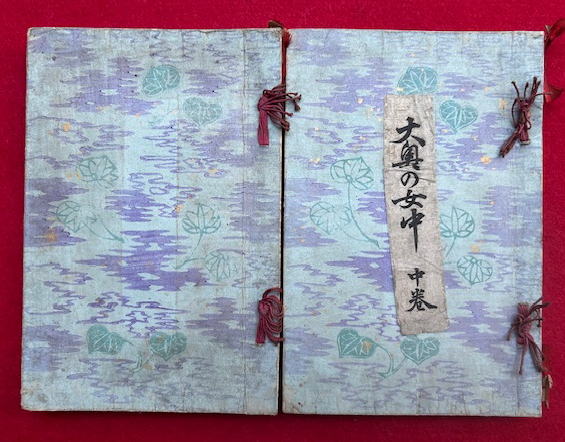 大奥の女中 中巻